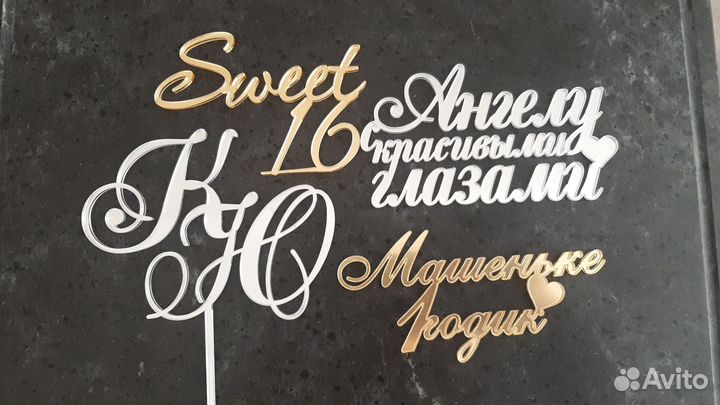 Sweet
16
Ангелу
с красивыми
глазами
КЮ
Машеньке
1 годик
Avito